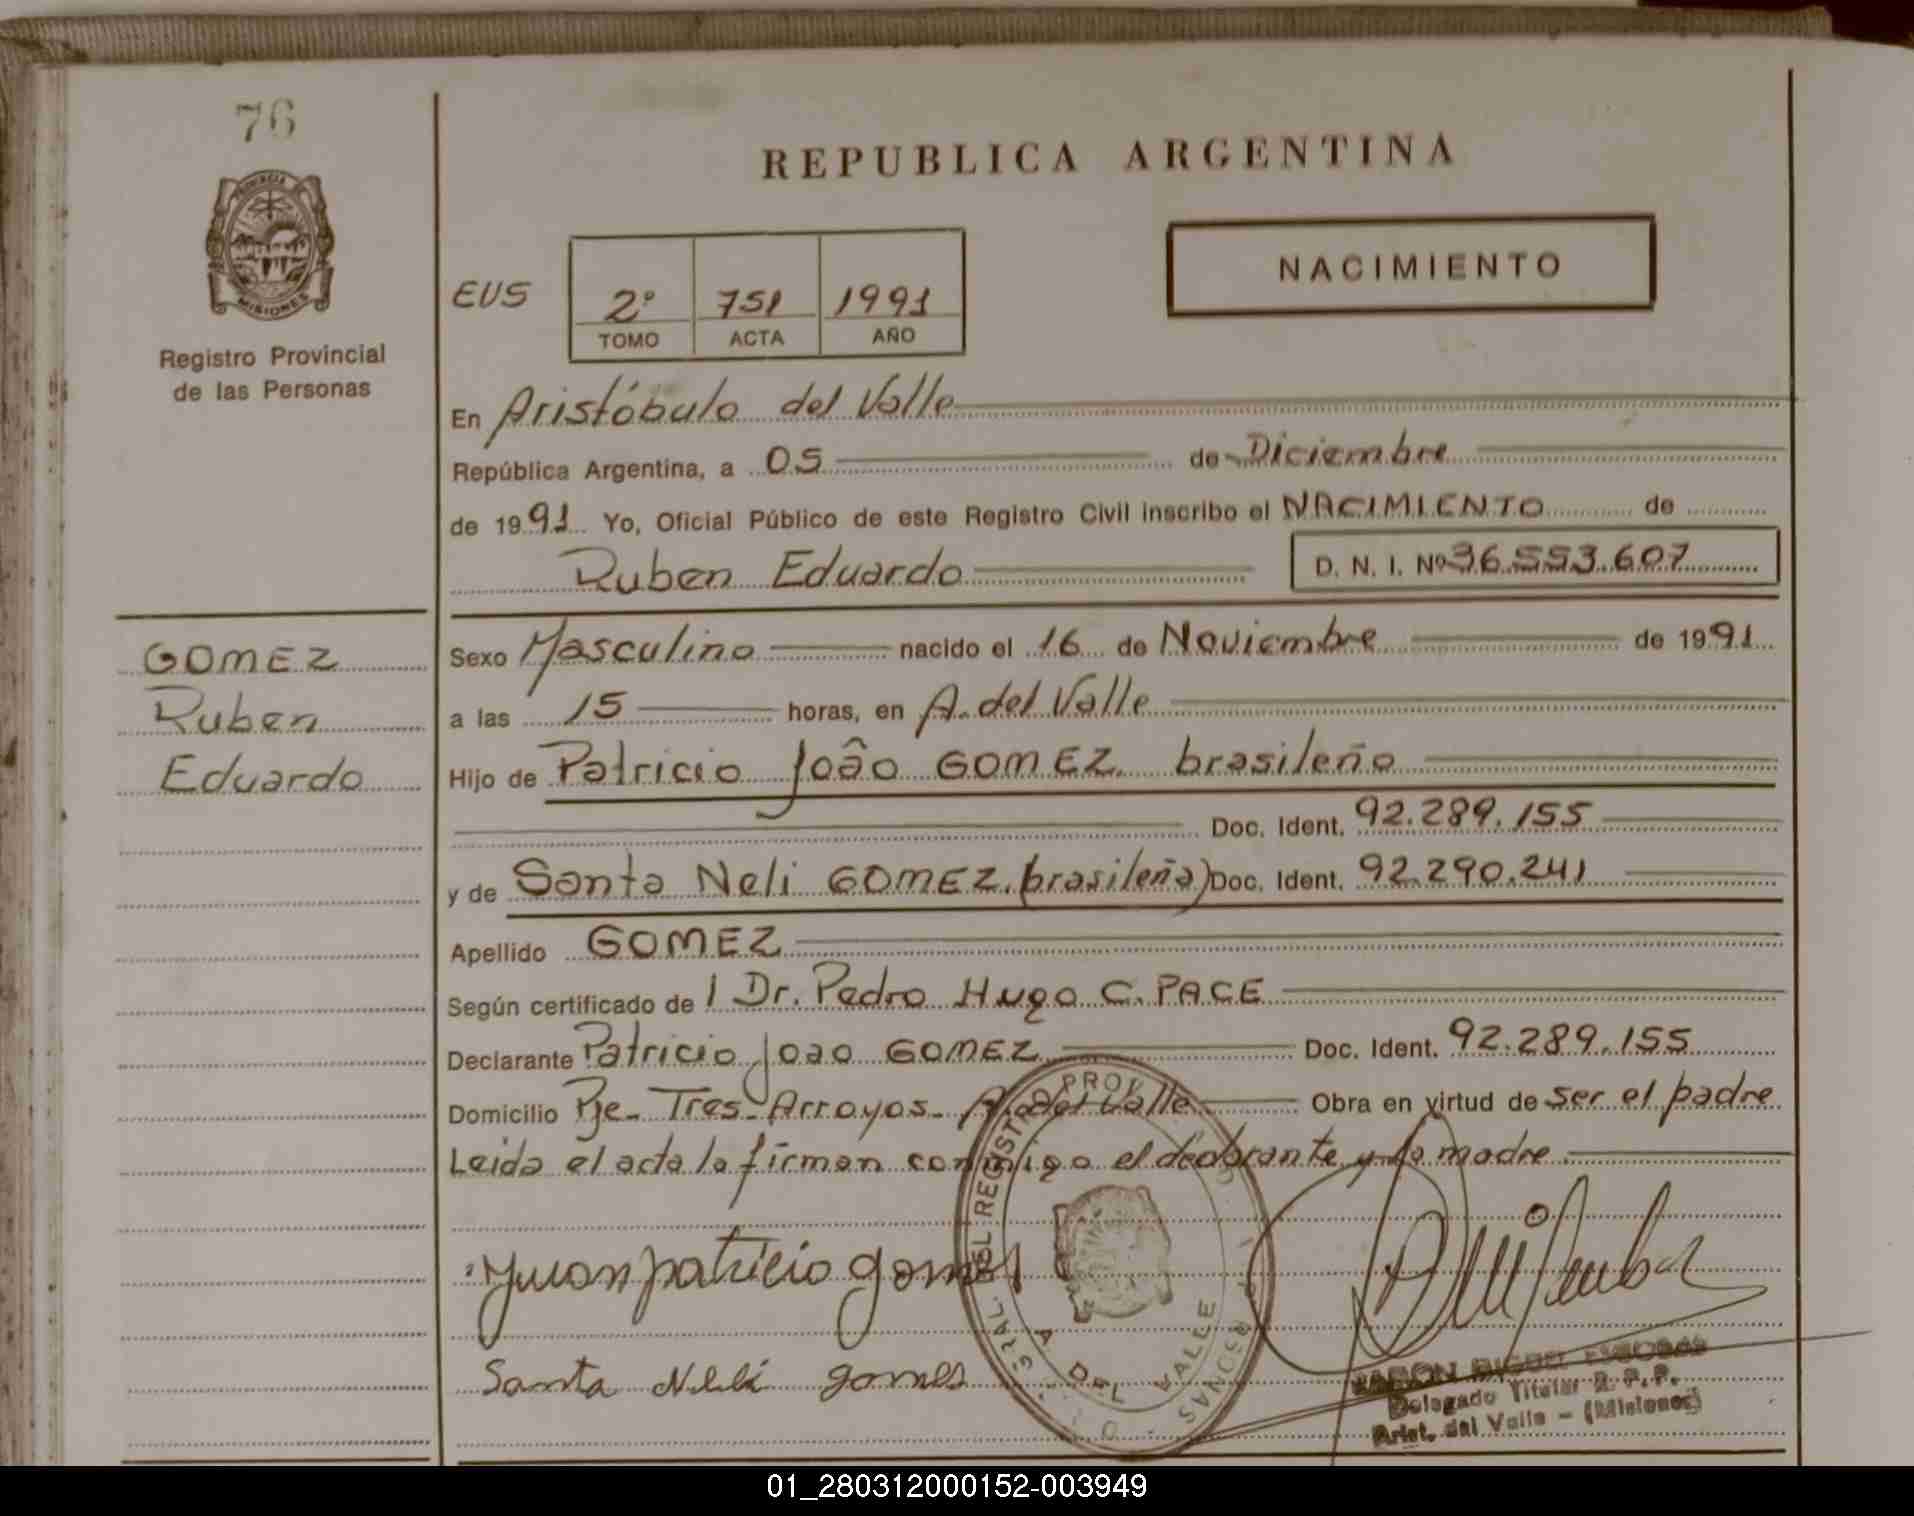 76
PROVINCIA
MISIONES
Registro Provincial
de las Personas
REPUBLICA ARGENTINA
NACIMIENTO
EUS
2° 751 1991
TOMO ACTA AÑO
En Aristóbulo del Valle
República Argentina, a 05 de Diciembre
de 1991 Yo, Oficial Público de este Registro Civil inscribo el NACIMIENTO de
Ruben Eduardo D. N. I. Nº 36.553.607
GOMEZ
Ruben
Eduardo
Sexo Masculino nacido el 16 de Noviembre de 1991
a las 15 horas, en A. del Valle
Hijo de Patricio Joâo GOMEZ. brasileño
Doc. Ident. 92.289.155
y de Santa Neli GOMEZ. (brasileña) Doc. Ident. 92.290.241
Apellido GOMEZ
Según certificado de / Dr. Pedro Hugo C. PACE
Declarante Patricio Joao GOMEZ Doc. Ident. 92.289.155
Domicilio Pje- Tres-Arroyos- A. del Valle Obra en virtud de ser el padre
Leida el acta la firman conmigo el declarante y la madre
Juan patricio gomes
Santa Neli gomes
DEL REGISTRO PROV.
A DEL VALLE
Delegado Titular R.P.P.
Arist. del Valle - (Misiones)
01_280312000152-003949